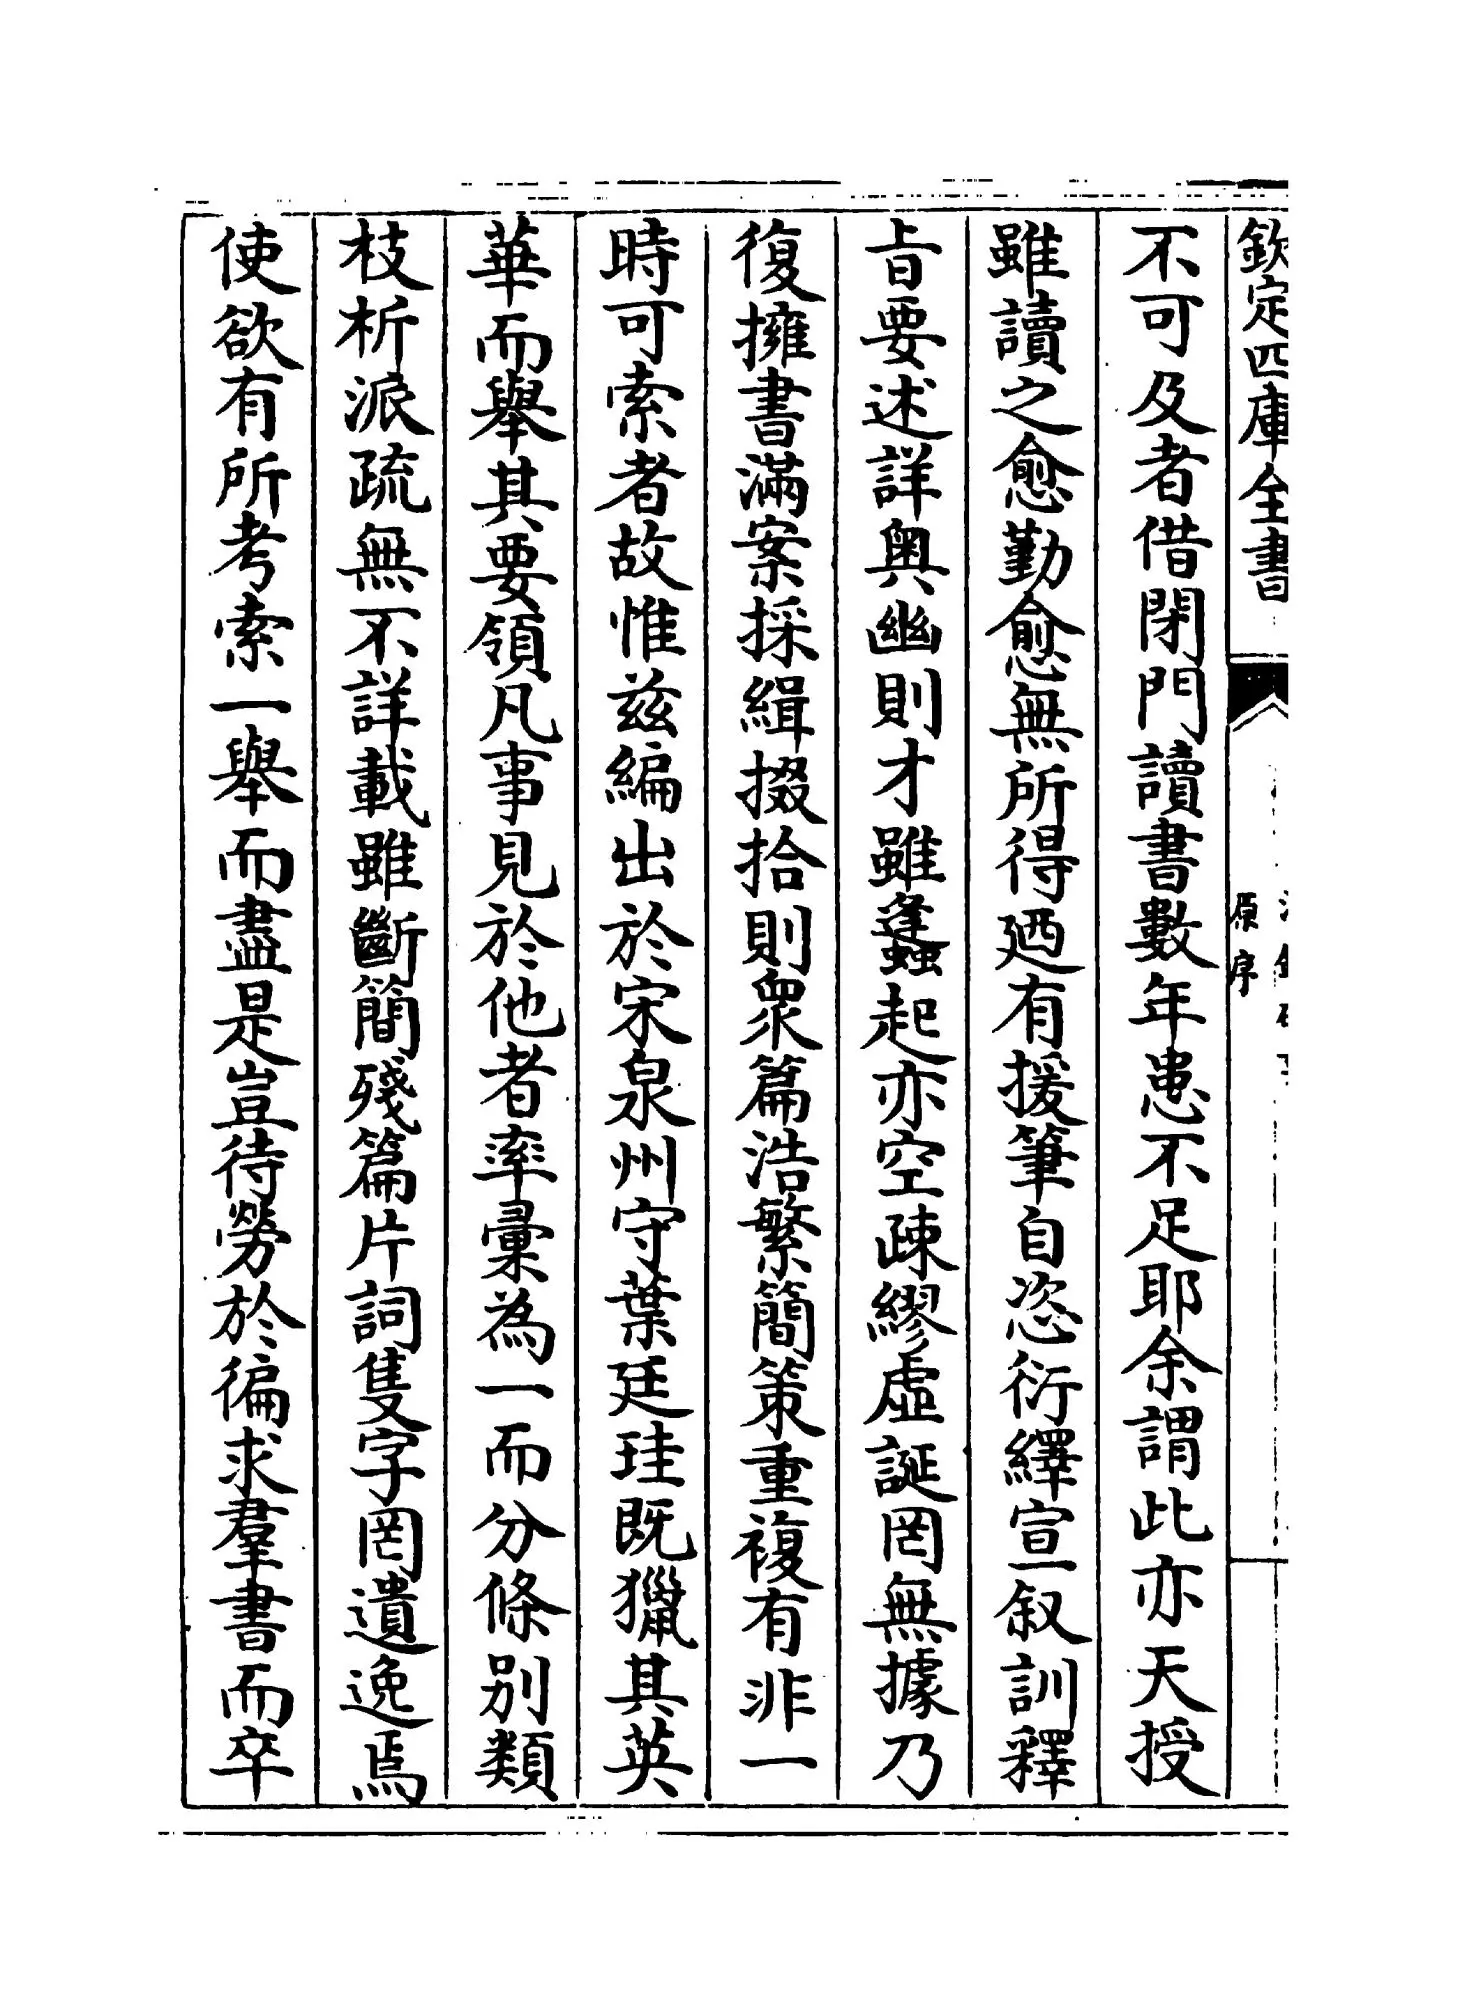 欽定四庫全書
原序
不可及者借閉門讀書數年患不足耶余謂此亦天授
雖讀之愈勤愈無所得廼有援筆自恣衍繹宣叙訓釋
旨要述詳奥幽則才雖蠭起亦空疎繆虛誕罔無據乃
復擁書滿案採緝掇拾則衆篇浩繁簡策重複有非一
時可索者故惟兹編出於宋泉州守葉廷珪既獵其英
華而舉其要領凡事見於他者率彙為一而分條別類
枝析派疏無不詳載雖斷簡殘篇片詞隻字罔遺逸焉
使欲有所考索一舉而盡是豈待勞於徧求羣書而卒